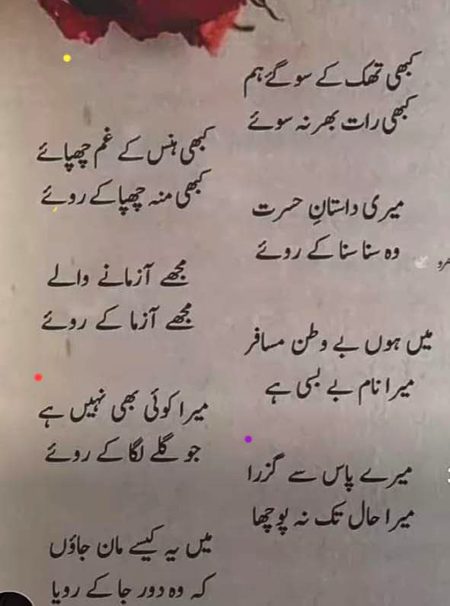 کبھی تھک کے سو گئے ہم
کبھی رات بھر نہ سوئے
کبھی ہنس کے غم چھپائے
کبھی منہ چھپا کے روئے
میری داستانِ حسرت
وہ سنا سنا کے روئے
مجھے آزمانے والے
مجھے آزما کے روئے
میں ہوں بے وطن مسافر
میرا نام بے بسی ہے
میرا کوئی بھی نہیں ہے
جو گلے لگا کے روئے
میرے پاس سے گزرا
میرا حال تک نہ پوچھا
میں یہ کیسے مان جاؤں
کہ وہ دور جا کے رویا